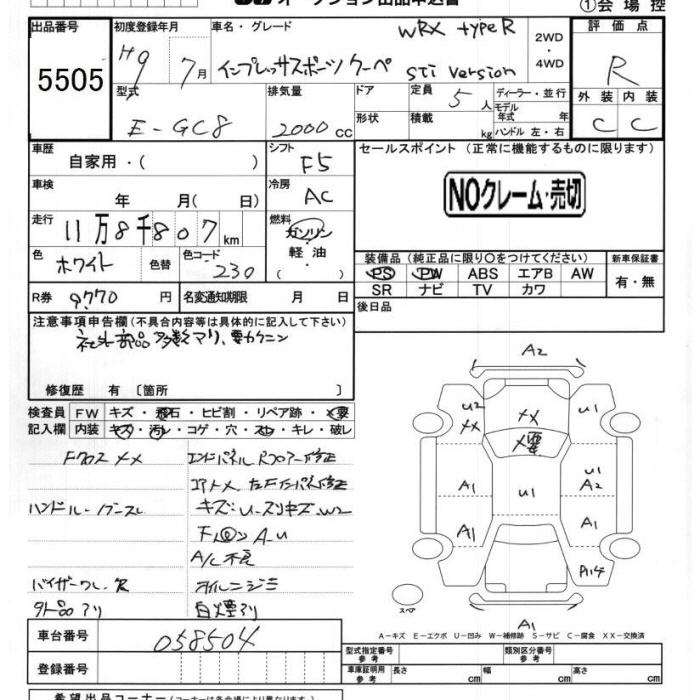 オークション出品申込書
①会場控
出品番号
5505
初度登録年月
H9年 7月
車名・グレード
WRX typeR
インプレッサスポーツクーペ STi version
2WD
・
4WD
評価点
R
外装 内装
C C
型式
E-GC8
排気量
2000cc
ドア
形状
定員 5人
積載 kg
ディーラー・並行
モデル
年式 年
ハンドル 左・右
車歴
自家用・( )
シフト
F5
セールスポイント (正常に機能するものに限ります)
NOクレーム・売切
車検
年 月( 日)
冷房
AC
走行
11万8千807km
燃料
ガソリン
軽油
( )
色
ホワイト
色替
色コード
230
装備品 (純正品に限り○をつけてください)
新車保証書
PS PW ABS エアB AW
SR ナビ TV カワ
有・無
R券 9770円
名変通知期限 月 日
後日品
注意事項申告欄(不具合内容等は具体的に記入して下さい)
社外部品多数アリ、要カクニン
修復歴 有 〔箇所 〕
検査員
記入欄
FW キズ・飛石・ヒビ割・リペア跡・×要
内装 キズ・汚レ・コゲ・穴・スレ・キレ・破レ
Fクロス××
ハンドル・
バイザーワレ
外品アリ
エンドパネルRフロアー修正
コアトメ
キズ
W2
A-U
A/C不良
オイルニジミ
白煙アリ
A2
U2
××
××
×要
U1
A1
U1
U1
A2
A1
A1
A14
スペア
A1
A-キズ E-エクボ U-凹み W-補修跡 S-サビ C-腐食 XX-交換済
車台番号
058504
登録番号
型式指定番号
参考
類別区分番号
参考
車庫証明用
参考
長さ cm
幅 cm
高さ cm
希望出品コーナー(コーナーは各会場により異なります)